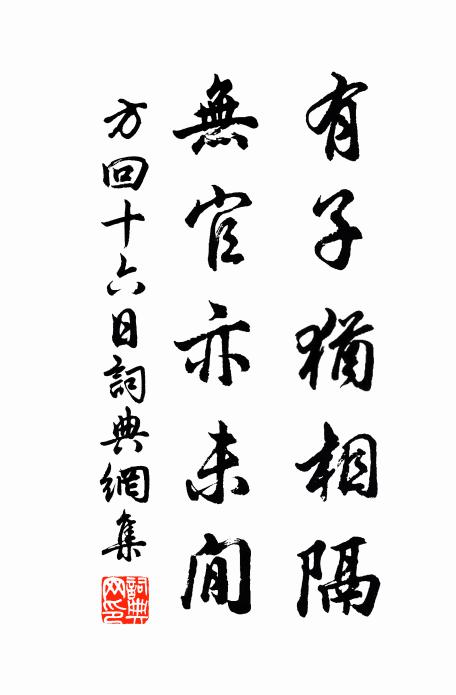 有子猶相隔
無官亦未閒
方回十六日詞典網集
詞典網印